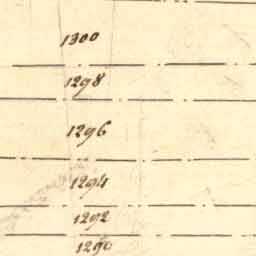 1300
1298
1296
1294
1292
1290